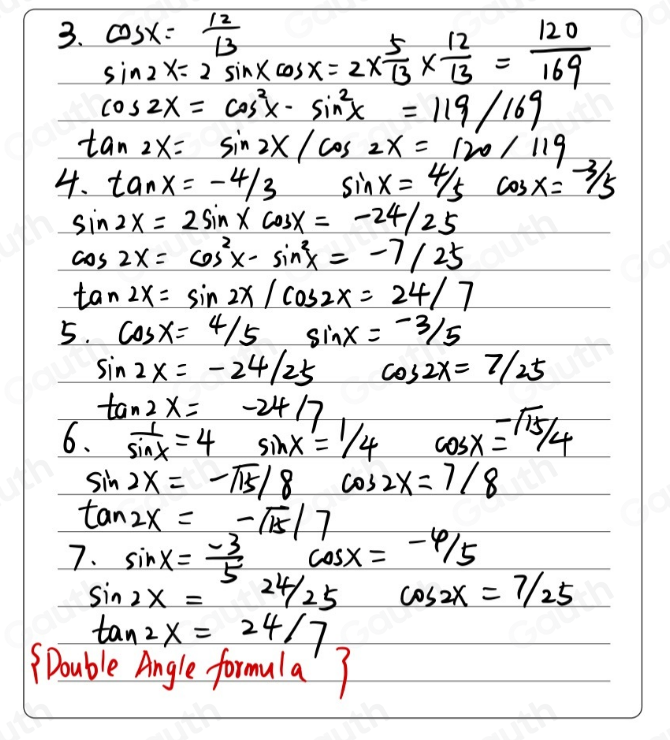 3. cosx = 12/13
sin2x = 2 sinx cosx = 2×5/13 × 12/13 = 120/169
cos2x = cos²x - sin²x = 119/169
tan 2x = sin2x / cos 2x = 120/119
4. tanx = -4/3 sinx = 4/5 cosx = -3/5
sin2x = 2sinx cosx = -24/25
cos 2x = cos²x - sin²x = -7/25
tan2x = sin 2x / cos2x = 24/7
5. cosx = 4/5 sinx = -3/5
sin2x = -24/25 cos2x = 7/25
tan2x = -24/7
6. 1/sinx = 4 sinx = 1/4 cosx = -√15/4
sin2x = -√15/8 cos2x = 7/8
tan2x = -√15/7
7. sinx = -3/5 cosx = -4/5
sin2x = 24/25 cos2x = 7/25
tan2x = 24/7
{Double Angle formula}
Gauth